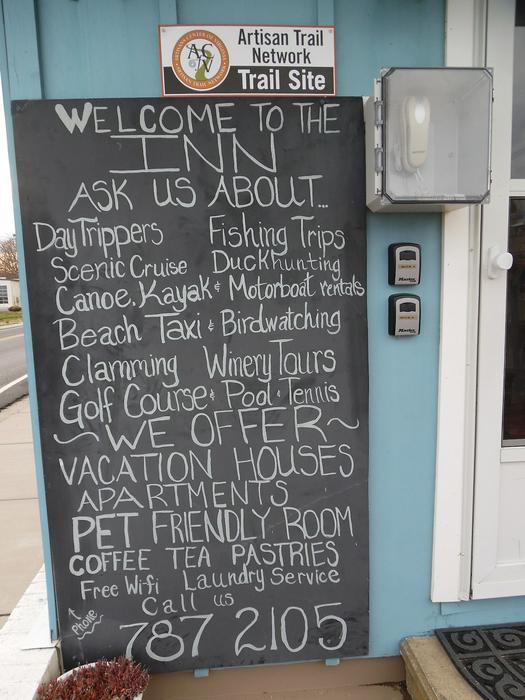 Artisan Trail
Network
Trail Site
WELCOME TO THE
INN
ASK US ABOUT...
Day Trippers Fishing Trips
Scenic Cruise Duckhunting
Canoe, Kayak & Motorboat rentals
Beach Taxi & Birdwatching
Clamming Winery Tours
Golf Course & Pool & Tennis
~WE OFFER~
VACATION HOUSES
APARTMENTS
PET FRIENDLY ROOM
COFFEE TEA PASTRIES
Free Wifi Laundry Service
Call us
↑ Phone
787 2105